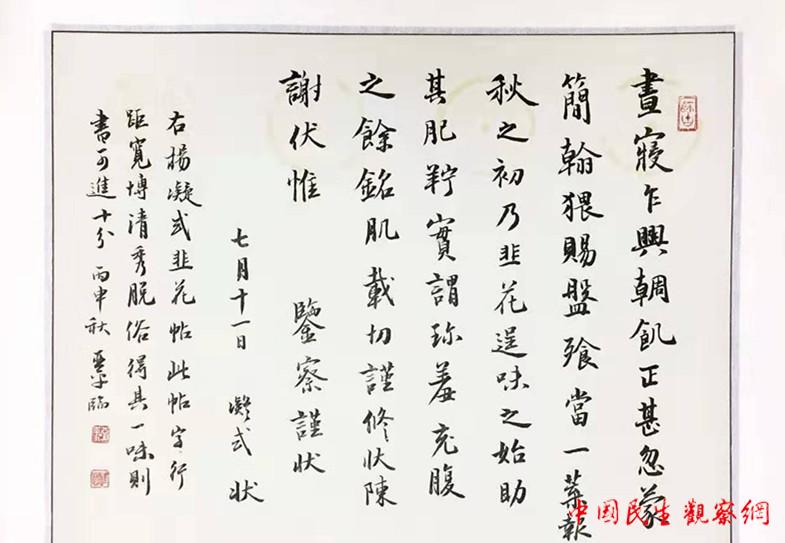 晝寢乍興輖飢正甚忽蒙
簡翰猥賜盤飧當一葉報
秋之初乃韭花逞味之始助
其肥羜實謂珍羞充腹
之餘銘肌載切謹修狀陳
謝伏惟 鑒察謹狀
七月十一日 凝式狀
右楊凝式韭花帖此帖字行
距寬博清秀脫俗得其一味則
書可進十分 丙申秋 臨
中国民生觀察網